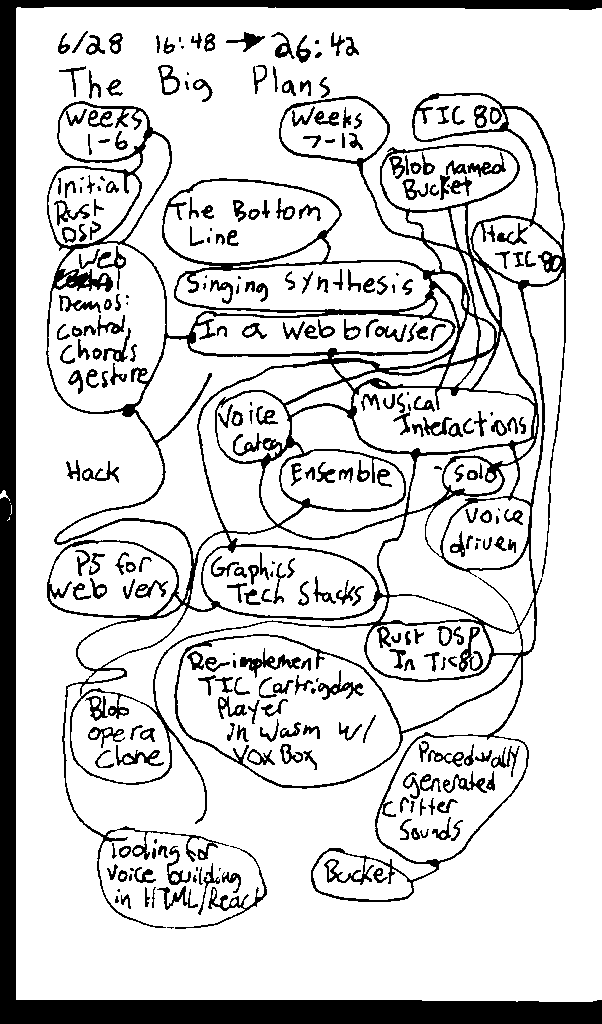 6/28 16:48 → 26:42
The Big Plans
Weeks
1-6
Weeks
7-12
TIC 80
Blob named
Bucket
Initial
Rust
DSP
The Bottom
Line
Hack
TIC 80
Web
Demos:
Control,
Chords
gesture
Singing Synthesis
In a Web browser
Musical
Interactions
Voice
Categ
Ensemble
Solo
Hack
Voice
driven
P5 for
web vers
Graphics
Tech Stacks
Rust DSP
In Tic80
Re-implement
TIC Cartrigdge
Player
in Wasm w/
VoxBox
Blob
opera
Clone
Procedurally
generated
critter
Sounds
Tooling for
Voice building
in HTML/React
Bucket